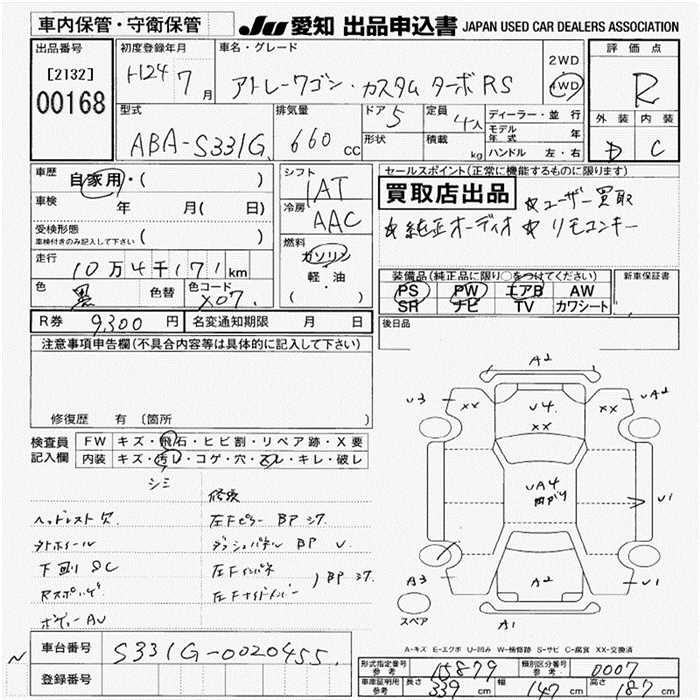 車内保管・守衛保管
JU 愛知 出品申込書 JAPAN USED CAR DEALERS ASSOCIATION
出品番号
[2132]
00168
初度登録年月
H24 7 月
車名・グレード
アトレーワゴン・カスタム ターボRS
2WD
4WD
評価点
R
外装 内装
D C
型式
ABA-S331G
排気量
660 cc
ドア 5
定員 4人
形状
積載 kg
ディーラー・並行
モデル年式 年
ハンドル 左・右
車歴
自家用・( )
車検 年 月( 日)
受検形態
車検付きのみ記入して下さい ( )
走行
10万4千171km
色 黒 色替 色コード X07.
シフト
IAT
冷房
AAC
燃料
ガソリン
軽・油
( )
セールスポイント(正常に機能するものに限ります)
買取店出品 ☆ユーザー買取
☆純正オーディオ ☆リモコンキー
装備品(純正品に限り○をつけてください)
PS PW エアB AW
SR ナビ TV カワシート
新車保証書
R券 9,300 円 名変通知期限 月 日
後日品
注意事項申告欄(不具合内容等は具体的に記入して下さい)
修復歴 有 〔箇所 〕
検査員記入欄
FW キズ・飛石・ヒビ割・リペア跡・X要
内装 キズ・汚レ・コゲ・穴・スレ・キレ・破レ
シミ
修復
ヘッドレスト欠
左Fピラー BP
タトホイール
ダッシュパネル BP U.
下廻り SC
左Fインパネ
左Fサイドメンバー
BP
ボディーAU
A2
U3
XX
U4
XX
XX
UA2
UA4
U1
A3
A2
U1
A1
スペア
A-キズ E-エクボ U-凹み W-補修跡 S-サビ C-腐食 XX-交換済
車台番号 S331G-0020455
登録番号
形式指定番号 参考 15879
類別区分番号 参考 0007
車庫証明用 参考 長さ 339 cm 幅 147 cm 高さ 187 cm